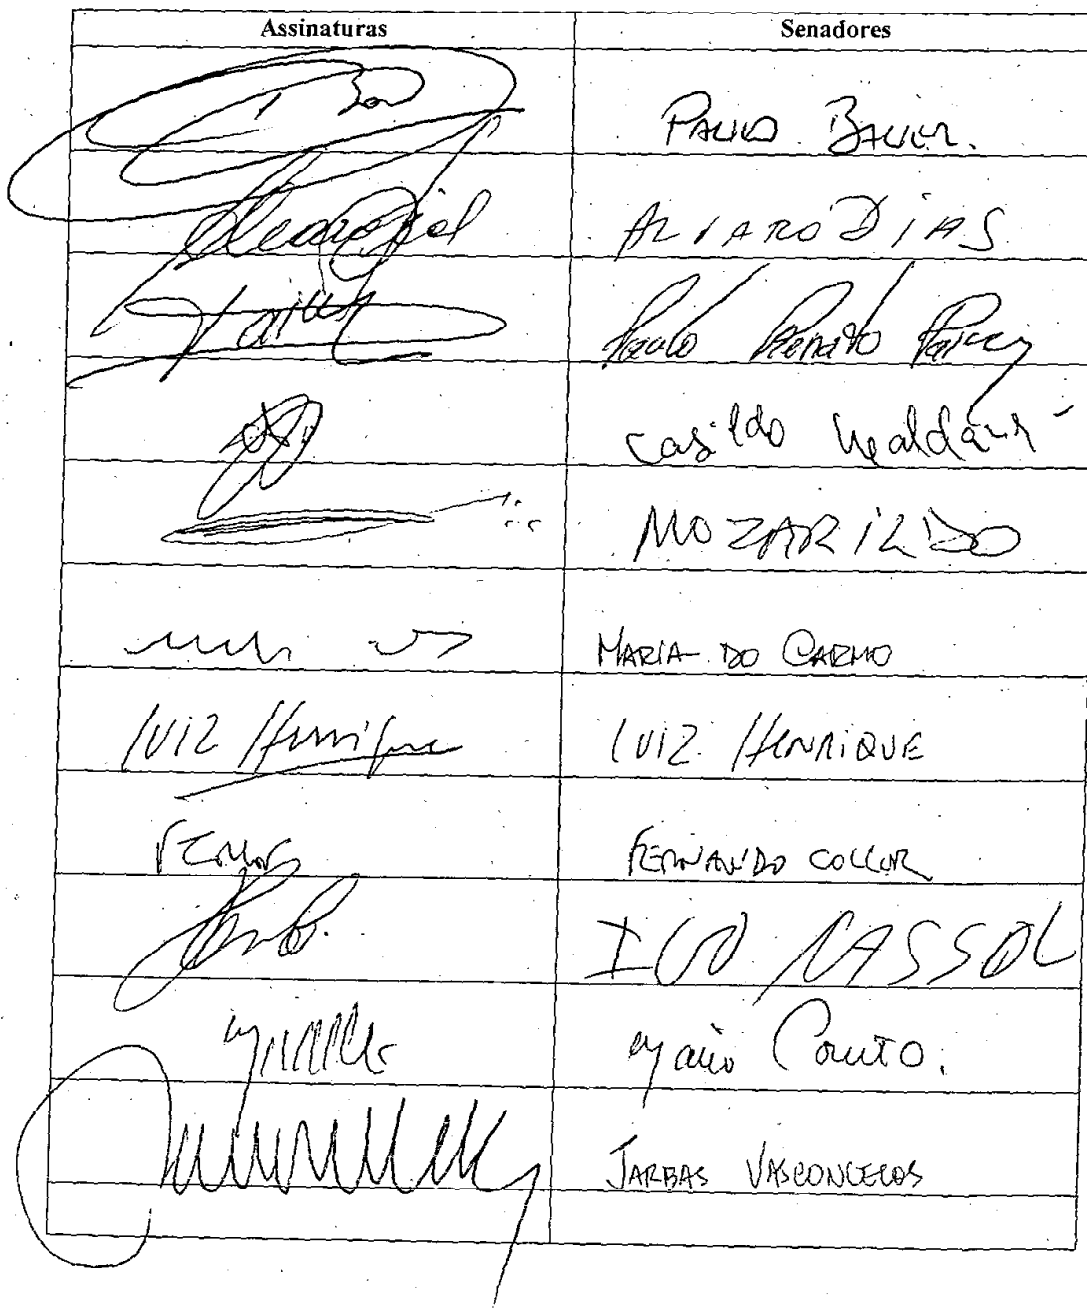 Assinaturas Senadores
PAULO BAUER.
Alvaro Dias ALVARO DIAS
Paulo Renato Paim
Casildo Maldaner
MOZARILDO
MARIA DO CARMO
LUIZ Henrique LUIZ HENRIQUE
FERNANDO COLLOR
IVO CASSOL
Mario Couto.
JARBAS VASCONCELOS